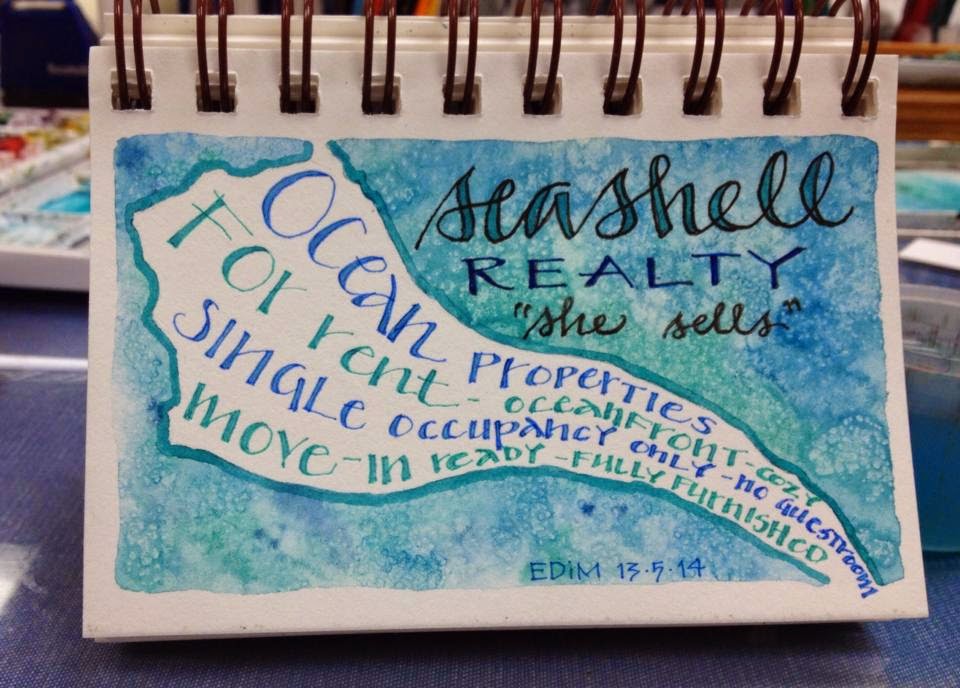 seashell
REALTY
"she sells"
Ocean Properties
For rent - oceanfront - cozy
SINGLE occupancy only - no guestroom
move-in ready - fully furnished
EDiM 13.5.14